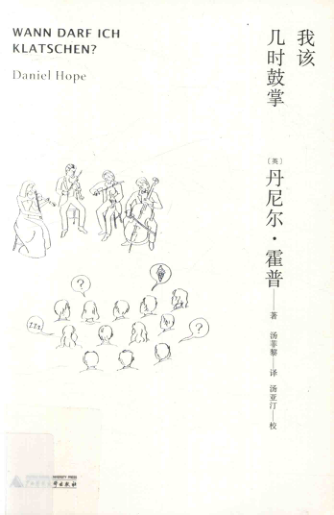 WANN DARF ICH
KLATSCHEN?
Daniel Hope
我该
几时鼓掌
〔英〕
丹尼尔·霍普
著
汤菲黎
译
汤亚汀
校
?
?
zzz
广西师范大学出版社